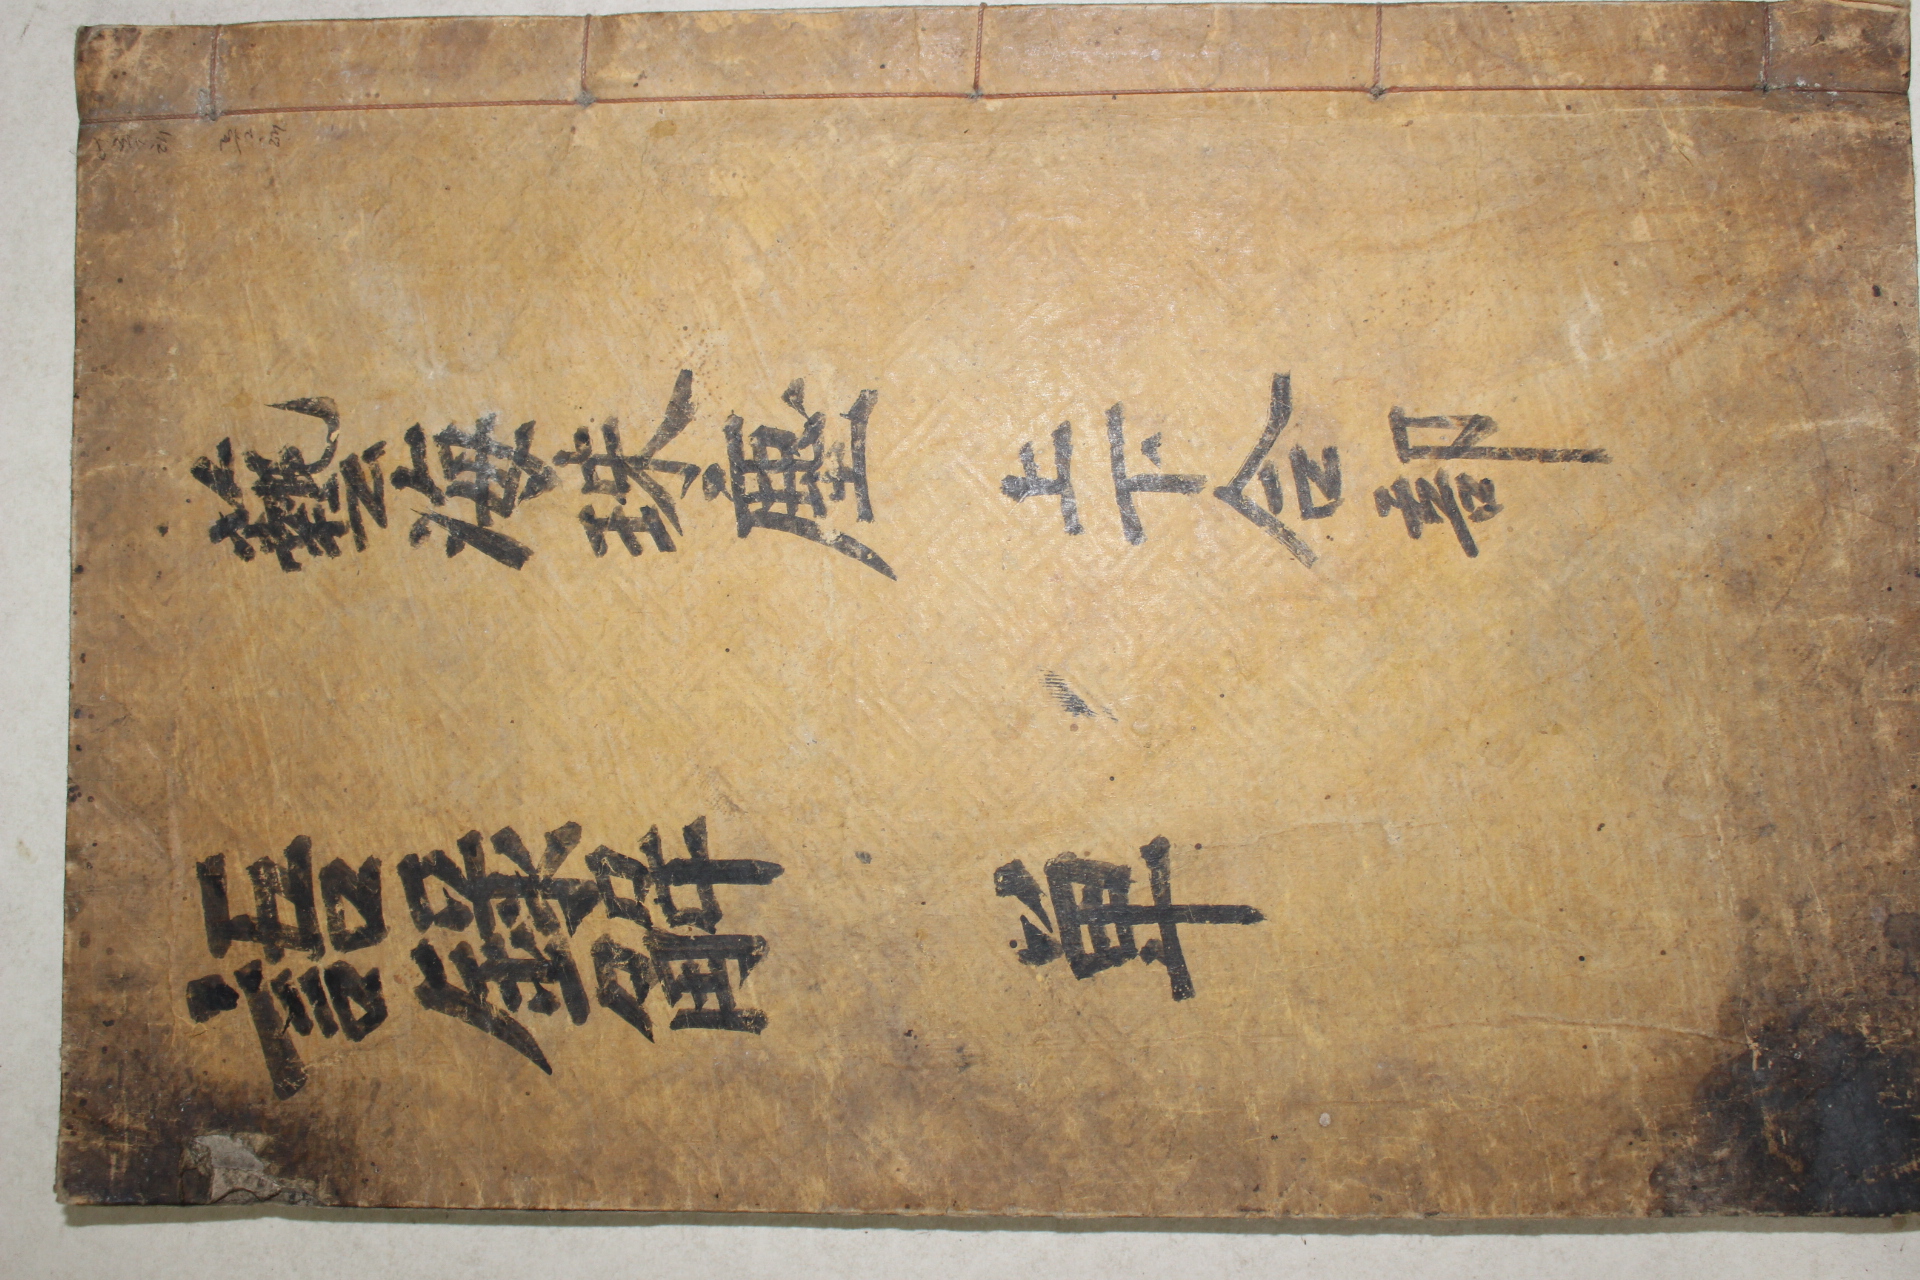 藝海珠塵 上下合部
語錄解 单